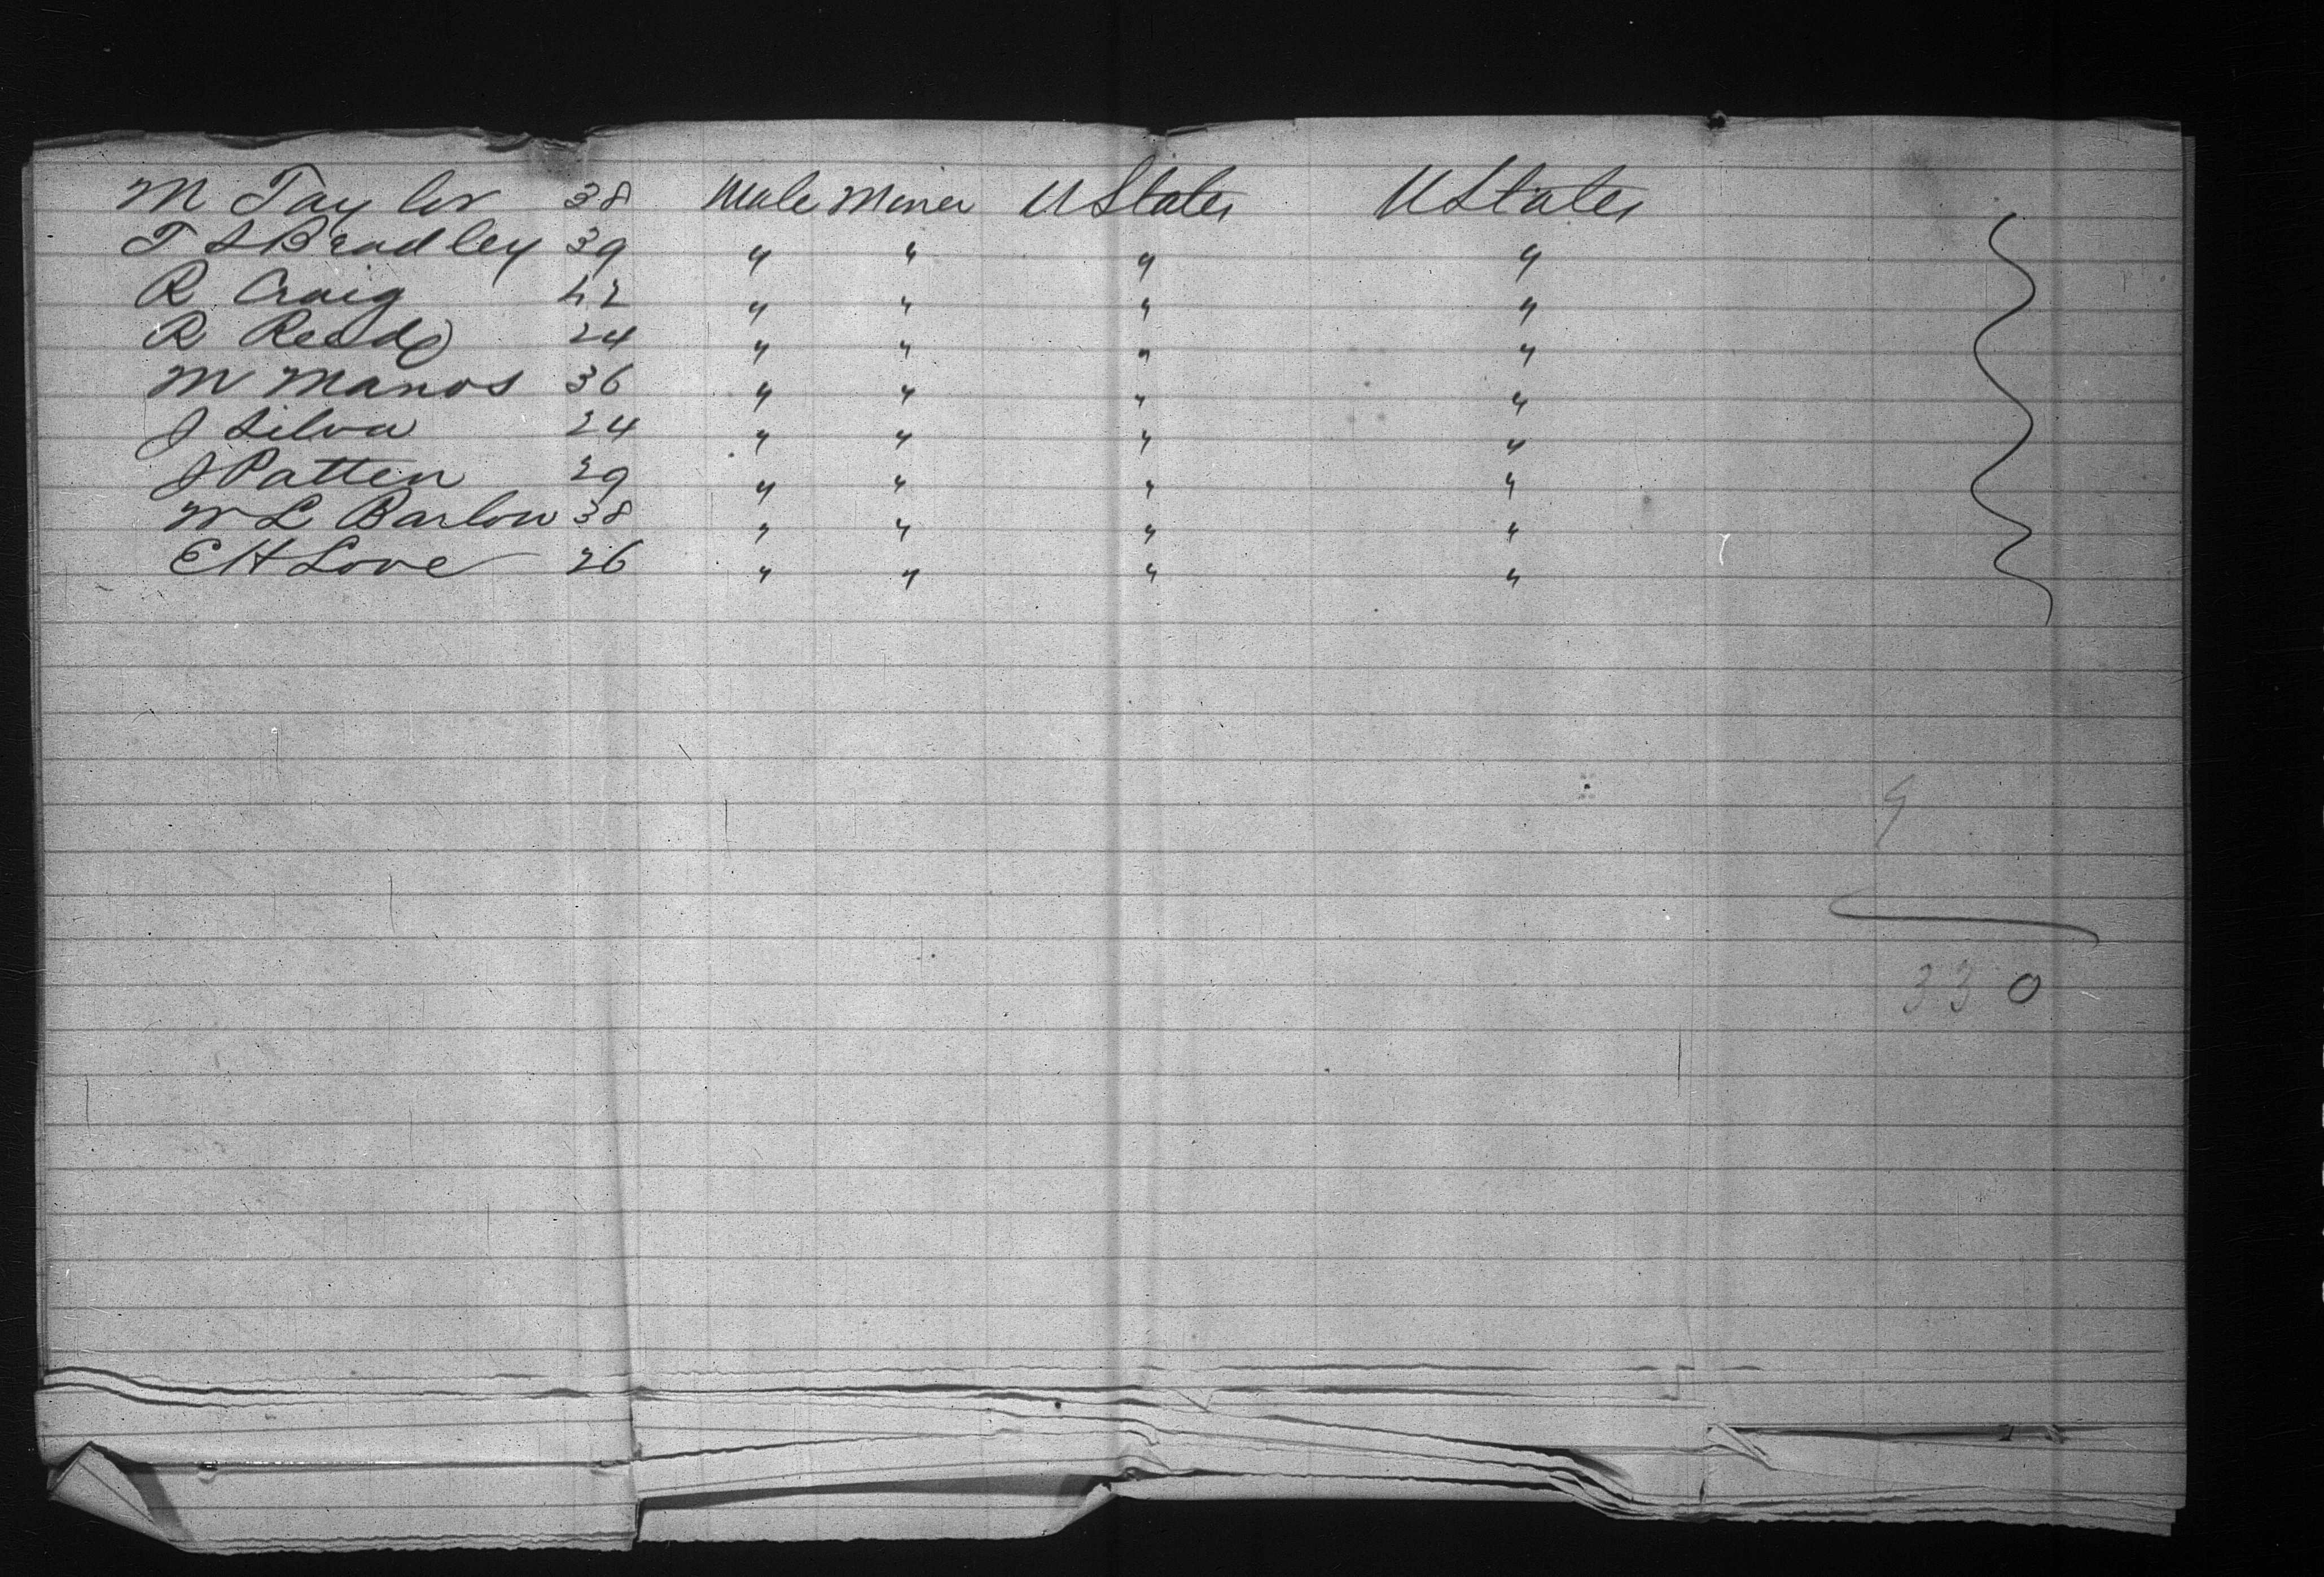 M Taylor 38 Male Miner U States U States
T S Bradley 39 " " " "
R Craig 42 " " " "
R Reed 24 " " " "
M Manos 36 " " " "
J Silva 24 " " " "
J Patten 29 " " " "
W L Barlow 38 " " " "
E H Love 26 " " " "
9
330